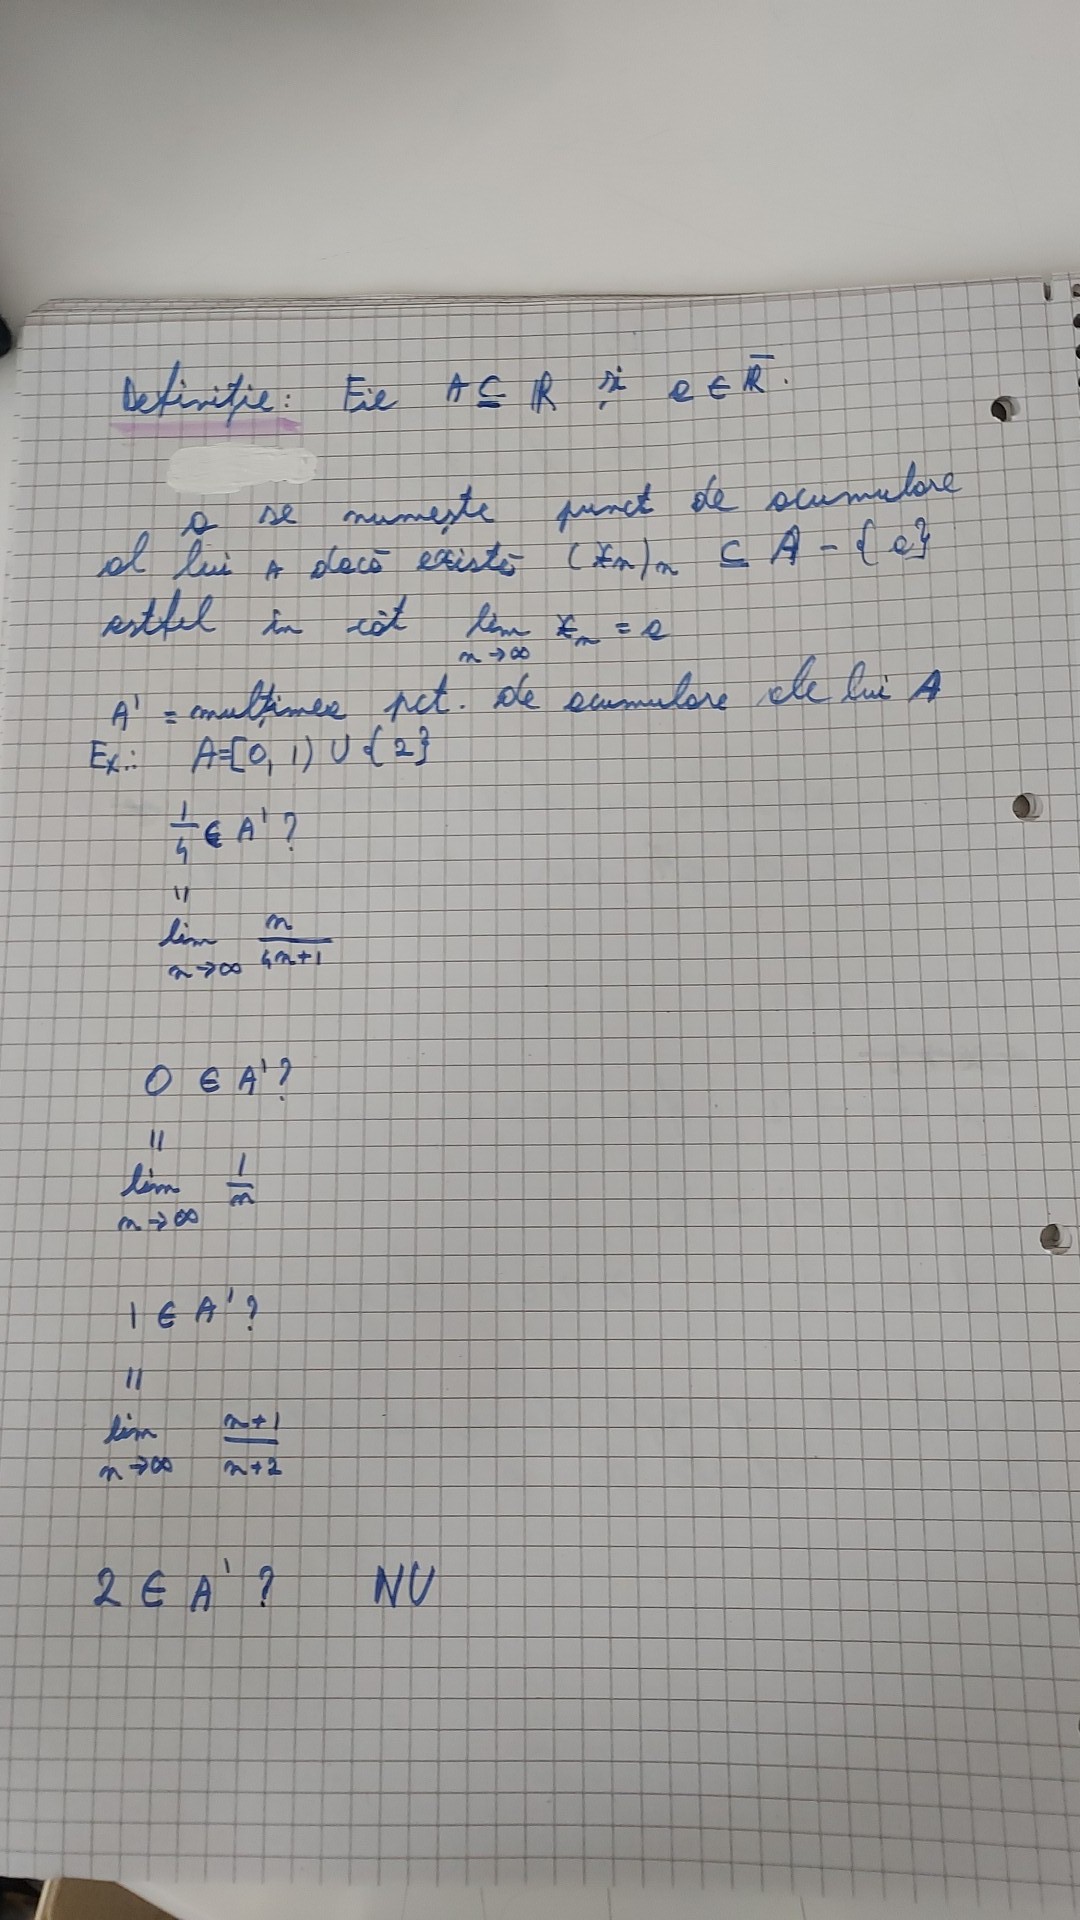 Definiție: Fie A ⊆ ℝ și a ∈ ℝ̅.
a se numește punct de acumulare
al lui A dacă există (xₙ)ₙ ⊆ A - {a}
astfel în cât lim xₙ = a
n→∞
A' = mulțimea pct. de acumulare ale lui A
Ex.: A=[0, 1) ∪ {2}
1/4 ∈ A' ?
=
lim n/(4n+1)
n→∞
0 ∈ A' ?
=
lim 1/n
n→∞
1 ∈ A' ?
=
lim (n+1)/(n+2)
n→∞
2 ∈ A' ? NU